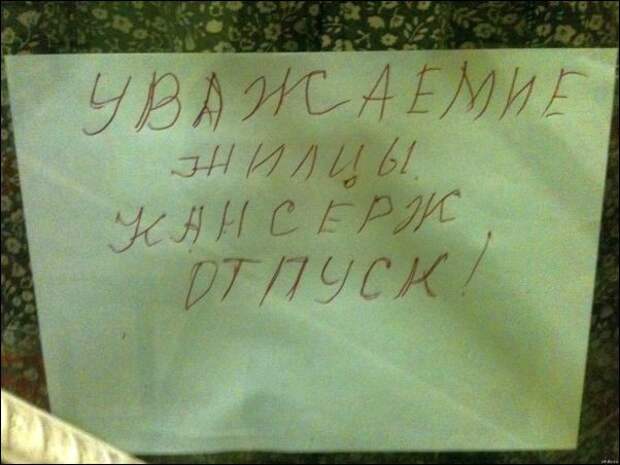 УВАЖАЕМИЕ
ЖИЛЦЫ
КАНСЕРЖ
ОТПУСК!